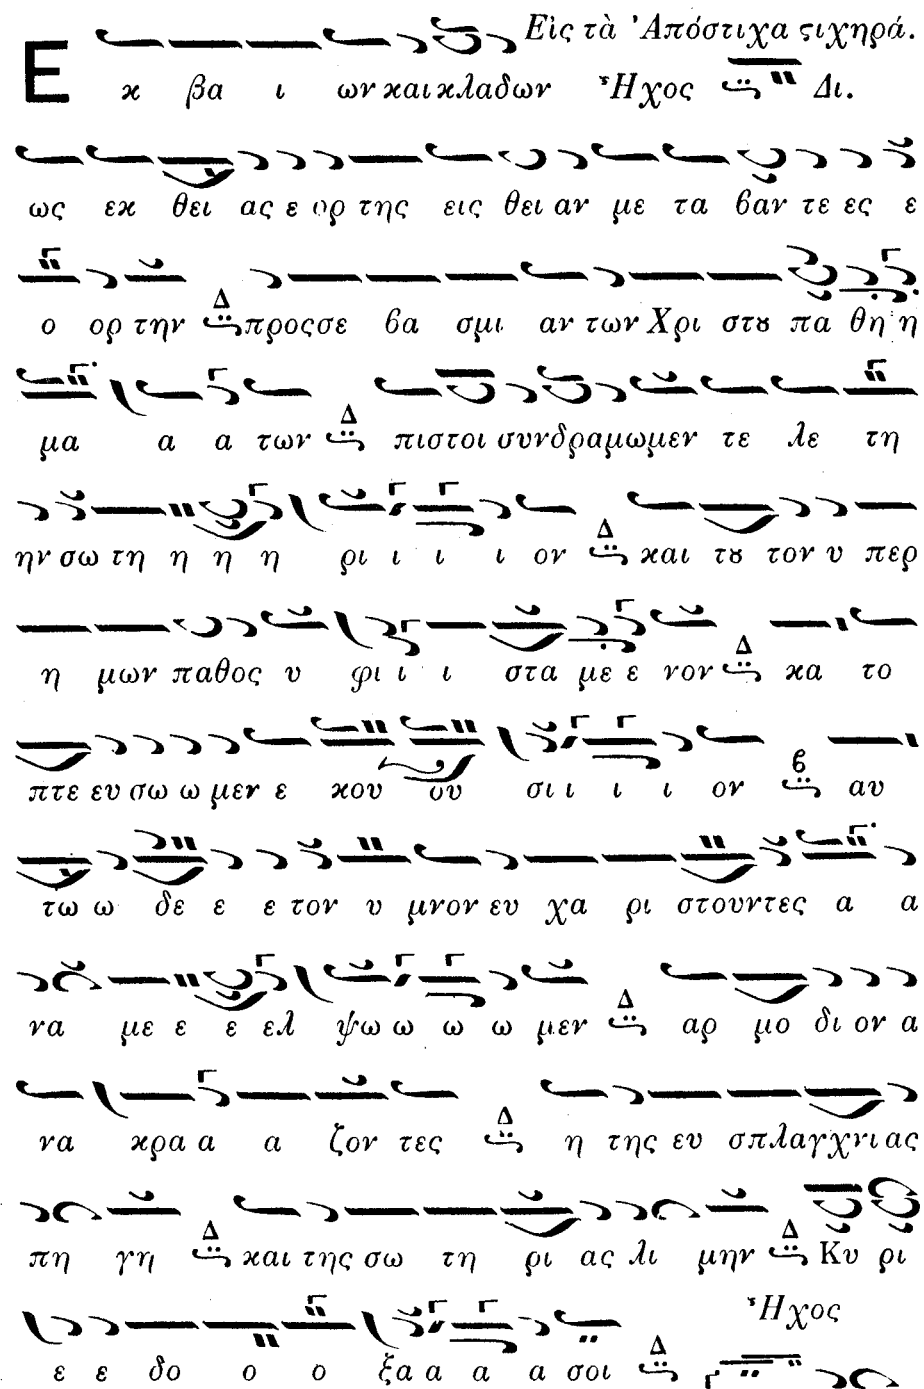 Εἰς τὰ Ἀπόστιχα ϛιχηρά.
Ε κ βα ι ων και κλαδων Ἦχος Δι.
ως εκ θει ας ε ορ της εις θει αν με τα βαν τε ες ε
ο ορ την Δ προς σε βα σμι αν των Χρι στȣ πα θη η
μα α α των Δ πιστοι συνδραμωμεν τε λε τη
ην σω τη η η η ρι ι ι ι ον Δ και τȣ τον υ περ
η μων παθος υ φι ι ι στα με ε νον Δ κα το
πτε ευ σω ω μεν ε κου ου σι ι ι ι ον β αυ
τω ω δε ε ε ε τον υ μνον ευ χα ρι στουντες α α
να με ε ε ελ ψω ω ω ω μεν Δ αρ μο δι ον α
να κρα α α ζον τες Δ η της ευ σπλαγχνι ας
πη γη Δ και της σω τη ρι ας λι μην Δ Κυ ρι
Ἦχος
ε ε δο ο ο ξα α α α σοι Δ